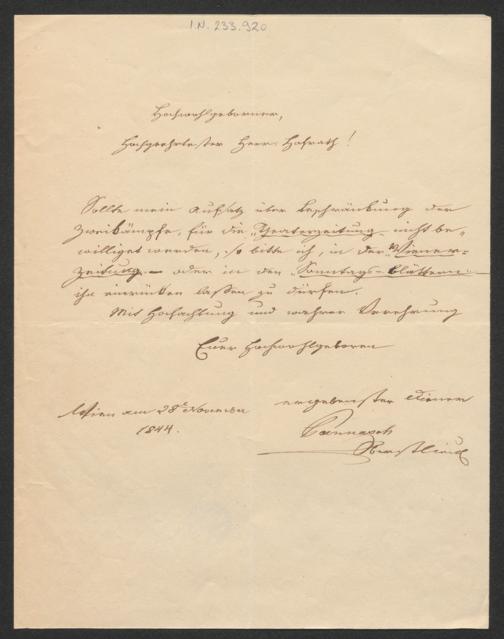 I.N. 233.920
Hochwohlgeborner,
Hochgeehrtester Herr Hofrath!
Sollte mein Aufsatz über Beschränkung der
Zweikämpfe, für die „Theaterzeitung" nicht be-
williget werden, so bitte ich, in der „Wiener-
zeitung" – oder in den „Sonntags-Blättern"
ihn einrücken lassen zu dürfen.
Mit Hochachtung und wahrer Verehrung
Euer Hochwohlgeboren
ergebenster Diener
Wien am 28t November
1844.
Pannasch
Obrstlieut